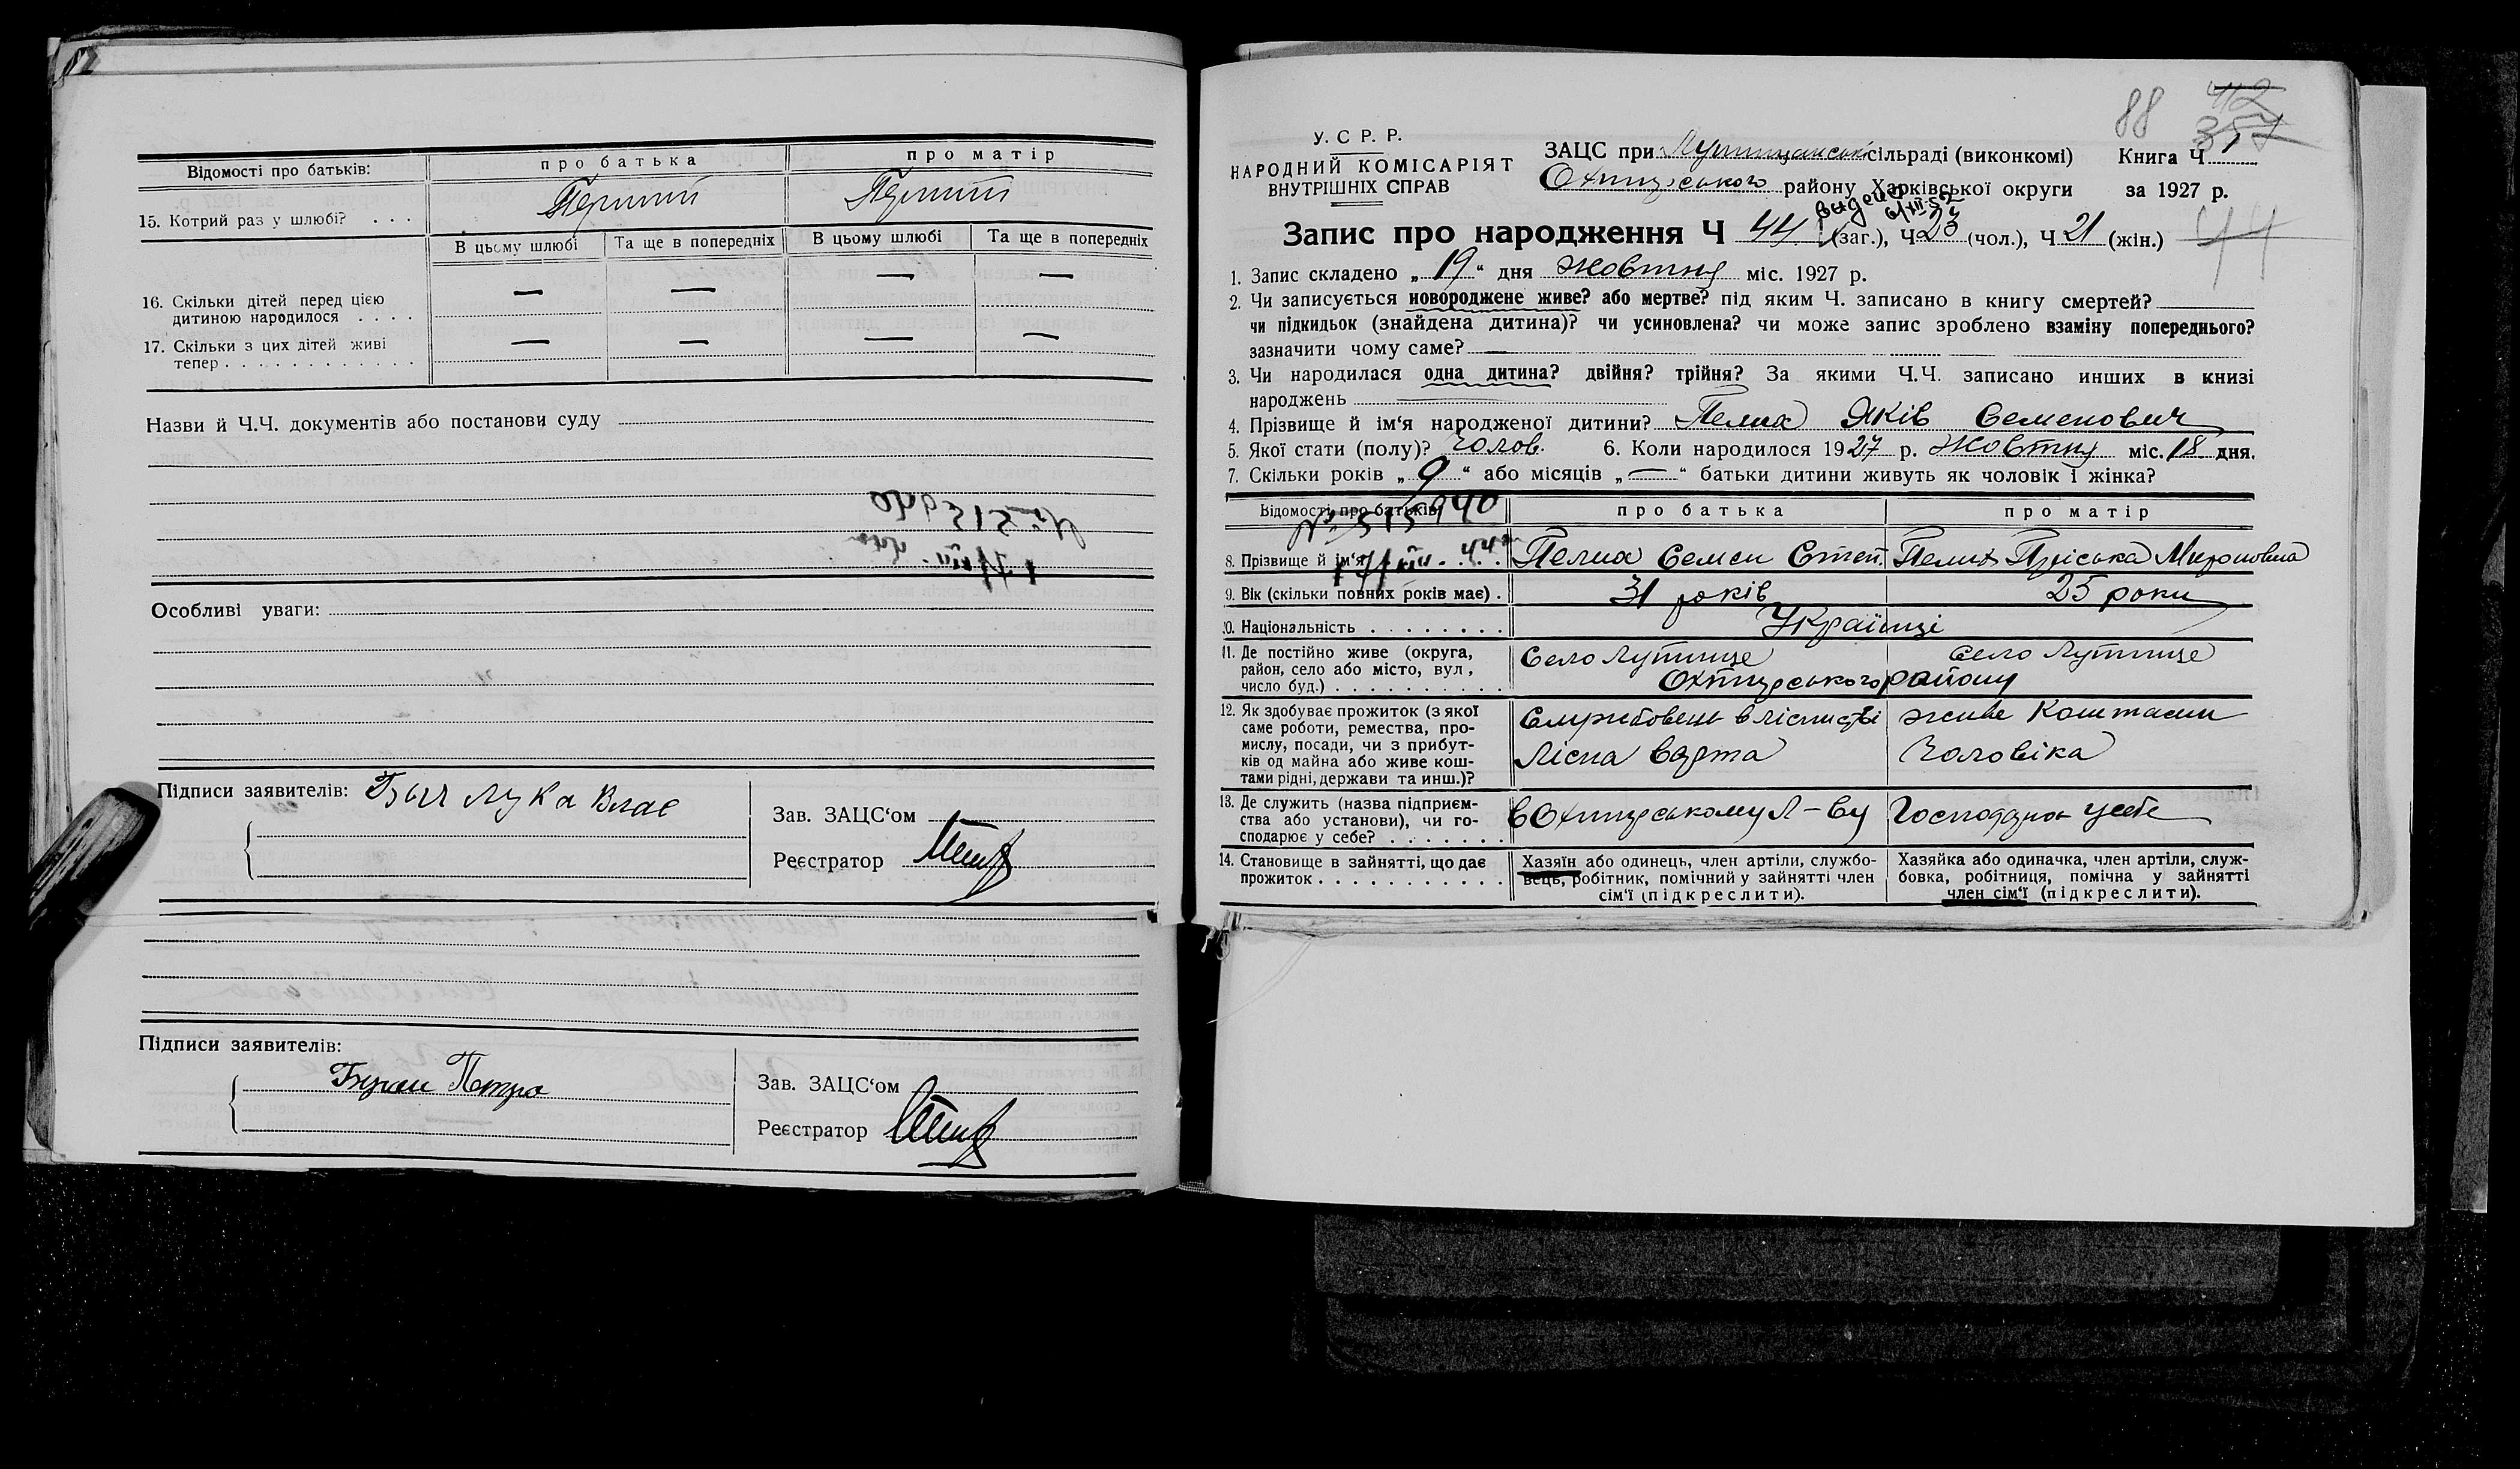 Відомості про батьків:
про батька
про матір
15. Котрий раз у шлюбі? . . .
Перший
Перший
В цьому шлюбі
Та ще в попередніх
В цьому шлюбі
Та ще в попередніх
16. Скільки дітей перед цією
дитиною народилося . . . .
— — — —
17. Скільки з цих дітей живі
тепер . . . . . . . . . . . .
— — — —
Назви й Ч.Ч. документів або постанови суду
Особливі уваги:
Підписи заявителів:
Лука Влас
Зав. ЗАЦС‘ом
Реєстратор
Підписи заявителів:
Петро
Зав. ЗАЦС‘ом
Реєстратор
88
412
357
У. С Р. Р.
НАРОДНИЙ КОМІСАРІЯТ
ВНУТРІШНІХ СПРАВ
ЗАЦС при сільраді (виконкомі)
Книга Ч 1
Охтирського району Харківської округи
за 1927 р.
6/XII-52
Запис про народження Ч 44 (заг.), Ч 23 (чол.), Ч 21 (жін.)
44
1. Запис складено „ 19 “ дня Жовтня міс. 1927 р.
2. Чи записується новороджене живе? або мертве? під яким Ч. записано в книгу смертей?
чи підкидьок (знайдена дитина)? чи усиновлена? чи може запис зроблено взаміну попереднього?
зазначити чому саме?
3. Чи народилася одна дитина? двійня? трійня? За якими Ч.Ч. записано инших в книзі
народжень
4. Прізвище й ім‘я народженої дитини? Пелих Яків Семенович
5. Якої стати (полу)? Чолов. 6. Коли народилося 1927 р. Жовтня міс. 18 дня.
7. Скільки років „ 9 “ або місяців „ — “ батьки дитини живуть як чоловік і жінка?
Відомості про батьків
про батька
про матір
8. Прізвище й ім‘я
Пелих Семен Степ.
Пелих Пріська Мироновна
9. Вік (скільки повних років має) .
31 років
25 роки
10. Національність . . . . . . . .
Українці
11. Де постійно живе (округа,
район, село або місто, вул,
число буд.) . . . . . . . . . .
Село Лутище
Село Лутище
Охтирського району
12. Як здобуває прожиток (з якої
саме роботи, ремества, про-
мислу, посади, чи з прибут-
ків од майна або живе кош-
тами рідні, держави та инш.)?
Службовець в лісництві
лісна варта
живе коштами
чоловіка
13. Де служить (назва підприєм-
ства або установи), чи го-
сподарює у себе? . . . . . . .
в Охтирському Л-ву
у себе
14. Становище в зайнятті, що дає
прожиток . . . . . . . . . . .
Хазяїн або одинець, член артіли, службо-
вець, робітник, помічний у зайнятті член
сім‘ї (підкреслити).
Хазяйка або одиначка, член артіли, служ-
бовка, робітниця, помічна у зайнятті
член сім‘ї (підкреслити).